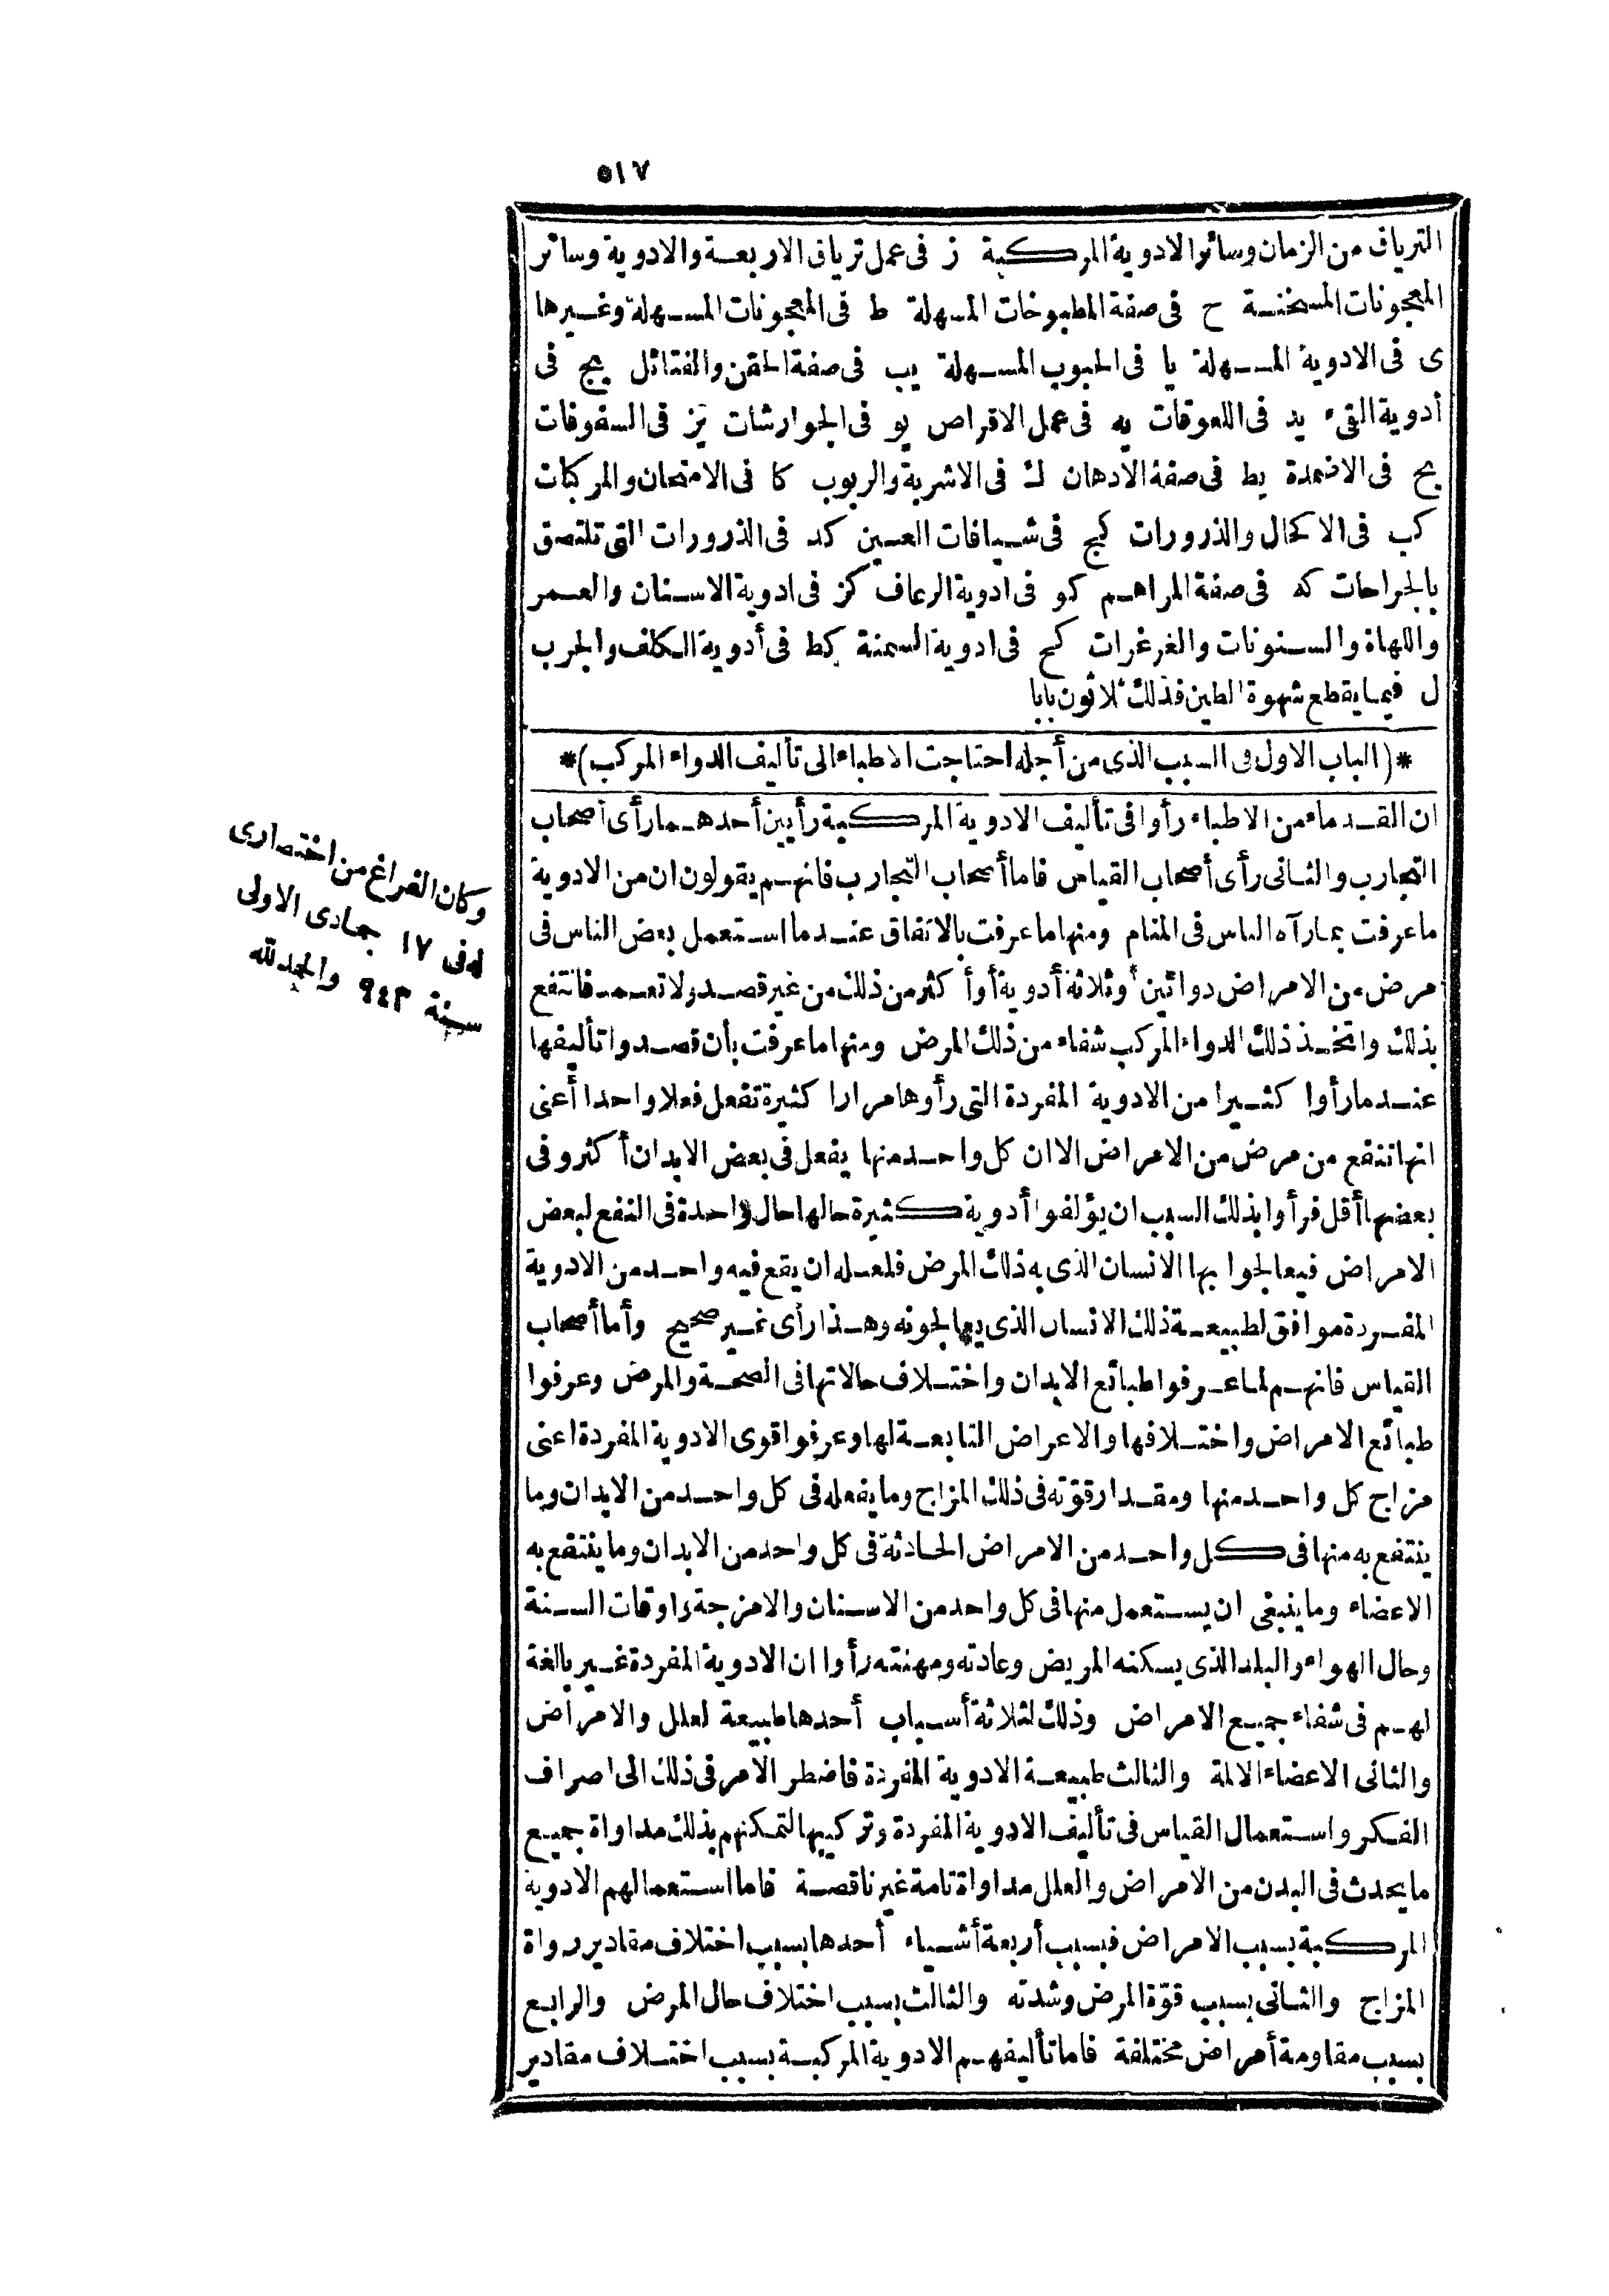 ٥١٧
الترياق من الزمان وسائر الادوية المركبة ز فى عمل ترياق الاربعة والادوية وسائر
المعجونات المسخنة ح فى صفة المطبوخات المسهلة ط فى المعجونات المسهلة وغيرها
ى فى الادوية المسهلة يا فى الحبوب المسهلة يب فى صفة الحقن والفتائل يج فى
أدوية القىء يد فى اللعوقات يه فى عمل الاقراص يو فى الجوارشات يز فى السفوفات
يح فى الاضمدة يط فى صفة الادهان ك فى الاشربة والربوب كا فى الامتحان والمركبات
كب فى الاكحال والذرورات كج فى شيافات العين كد فى الذرورات التى تلتصق
بالجراحات كه فى صفة المراهم كو فى ادوية الرعاف كز فى ادوية الاسنان والعمر
واللهاة والسنونات والغرغرات كح فى ادوية السمنة كط فى أدوية الكلف والجرب
ل فيما يقطع شهوة الطين فذلك ثلاثون بابا
*(الباب الاول فى السبب الذى من أجله احتاجت الاطباء الى تأليف الدواء المركب)*
ان القدماء من الاطباء رأوا فى تأليف الادوية المركبة رأيين أحدهما رأى أصحاب
التجارب والثانى رأى أصحاب القياس فاما أصحاب التجارب فانهم يقولون ان من الادوية
ما عرفت بما رآه الناس فى المنام ومنها ما عرفت بالاتفاق عندما استعمل بعض الناس فى
مرض من الامراض دوائين وثلاثة أدوية أو أكثر من ذلك من غير قصد ولا تعمد فانتفع
بذلك واتخذ ذلك الدواء المركب شفاء من ذلك المرض ومنها ما عرفت بأن قصدوا تأليفها
عندما رأوا كثيرا من الادوية المفردة التى رأوها مرارا كثيرة تفعل فعلا واحدا أعنى
انها تنفع من مرض من الامراض الا ان كل واحد منها يفعل فى بعض الابدان أكثر وفى
بعضها أقل فرأوا بذلك السبب ان يؤلفوا أدوية كثيرة حالها حال واحدة فى النفع لبعض
الامراض فيعالجوا بها الانسان الذى به ذلك المرض فلعله ان يقع فيه واحد من الادوية
المفردة موافق لطبيعة ذلك الانسان الذى يعالجونه وهذا رأى غير صحيح وأما أصحاب
القياس فانهم لما عرفوا طبائع الابدان واختلاف حالاتها فى الصحة والمرض وعرفوا
طبائع الامراض واختلافها والاعراض التابعة لها وعرفوا قوى الادوية المفردة اعنى
مزاج كل واحد منها ومقدار قوّته فى ذلك المزاج وما يفعله فى كل واحد من الابدان وما
ينتفع به منها فى كل واحد من الامراض الحادثة فى كل واحد من الابدان وما ينتفع به
الاعضاء وما ينبغى ان يستعمل منها فى كل واحد من الاسنان والامزجة واوقات السنة
وحال الهواء والبلد الذى يسكنه المريض وعادته ومهنته رأوا ان الادوية المفردة غير بالغة
لهم فى شفاء جميع الامراض وذلك لثلاثة أسباب أحدها طبيعة لعلل والامراض
والثانى الاعضاء الالمة والثالث طبيعة الادوية المفردة فاضطر الامر فى ذلك الى اصراف
الفكر واستعمال القياس فى تأليف الادوية المفردة وتركيبها لتمكنهم بذلك مداواة جميع
ما يحدث فى البدن من الامراض والعلل مداواة تامة غير ناقصة فاما استعمالهم الادوية
المركبة بسبب الامراض فبسبب أربعة أشياء أحدها بسبب اختلاف مقادير رداة
المزاج والثانى بسبب قوّة المرض وشدته والثالث بسبب اختلاف حال المرض والرابع
بسبب مقاومة أمراض مختلفة فاما تأليفهم الادوية المركبة بسبب اختلاف مقادير
وكان الفراغ من اختصارى
له فى ١٧ جمادى الاولى
سنة ٩٤٣ والحمد لله